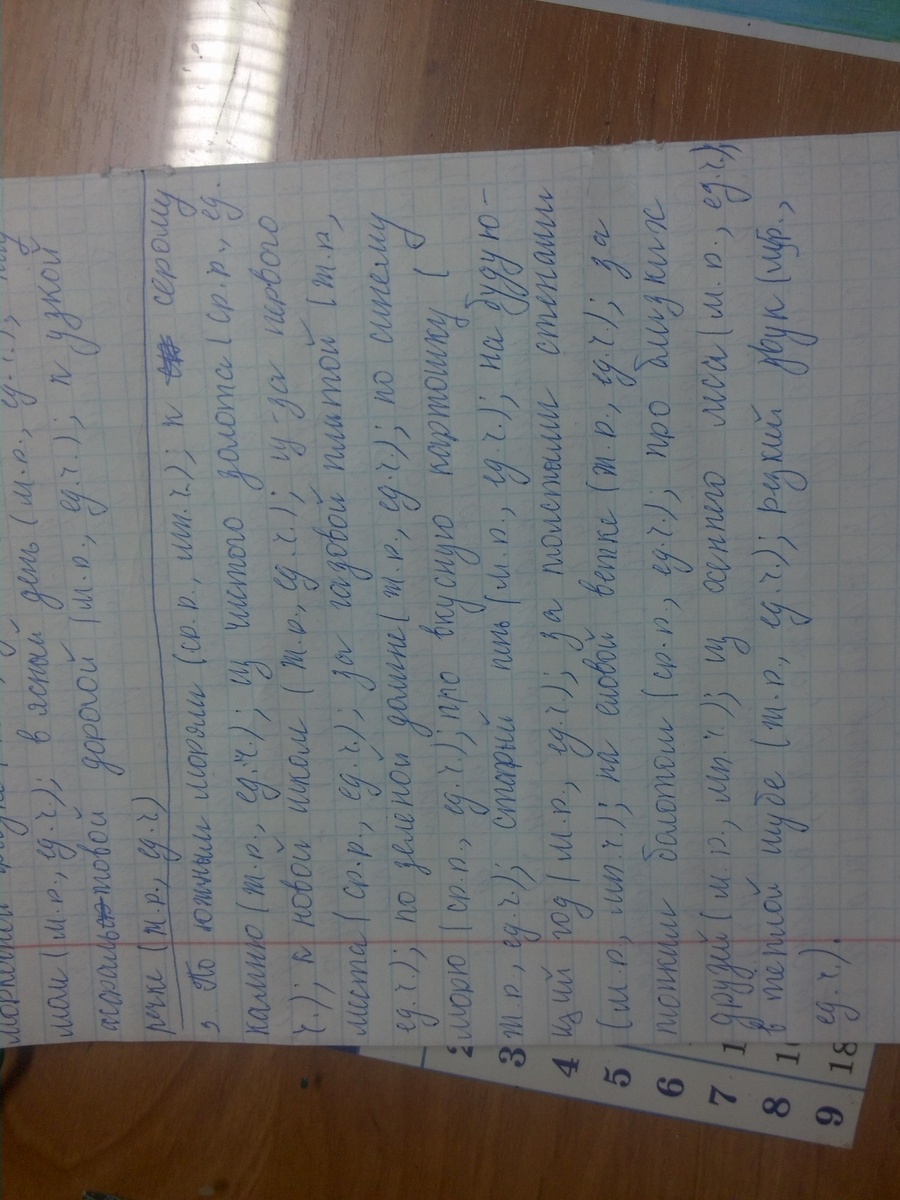 мои (м.р., ед.ч); в ясной день (м.р., ед.ч.);
асфальтовой дорогой (м.р., ед.ч.); к узкой
речке (ж.р., ед.ч)
По южным морям (ср.р., мн.ч.); к серому
камню (ж.р., ед.ч.); из чистого золота (ср.р., ед.
ч.); к новой школе (ж.р., ед.ч.); из-за первого
листа (ср.р., ед.ч.); за газовой плитой (ж.р.,
ед.ч.); по зелёной долине (ж.р., ед.ч.); по синему
морю (ср.р., ед.ч.); про вкусную картошку (
ж.р., ед.ч.); старый пень (м.р., ед.ч.); на будую-
щий год (м.р., ед.ч.); за толстыми стенами
(м.р., мн.ч.); на еловой ветке (ж.р., ед.ч.); за
топким болотом (ср.р., ед.ч.); про близких
друзей (м.р., мн.ч.); из осеннего леса (м.р., ед.ч.);
в тёплой шубе (ж.р., ед.ч.); резкий звук (м.р.,
ед.ч.).
2
3
4
5
6
7 1
8 1
9 18